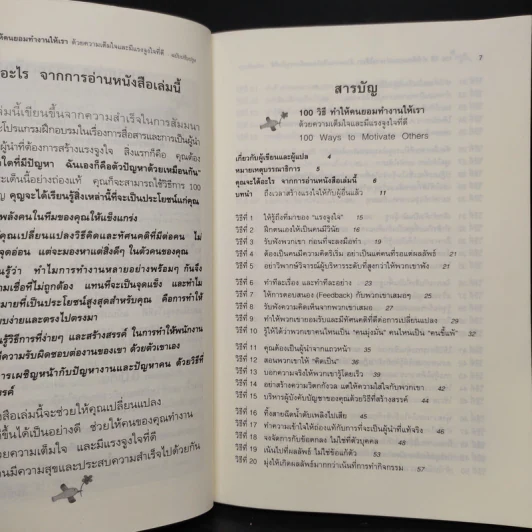 ห้คนยอมทำงานให้เรา ด้วยความเต็มใจและมีแรงจูงใจที่ดี
อะไร จากการอ่านหนังสือเล่มนี้
ล่มนี้เขียนขึ้นจากความสำเร็จในการสัมมนา
โปรแกรมฝึกอบรมในเรื่องการสื่อสารและการเป็นผู้นำ
ผู้นำที่ต้องการสร้างแรงจูงใจ สิ่งแรกก็คือ คุณต้อง
ใดที่มีปัญหา ฉันเองก็คือตัวปัญหาด้วยเหมือนกัน"
ะเด็นนี้อย่างถ่องแท้ คุณก็จะสามารถใช้วิธีการ 100
คุณจะได้เรียนรู้สิ่งเหล่านี้ที่จะเป็นประโยชน์แก่คุณ
พลังคนในทีมของคุณให้แข็งแกร่ง
คุณเปลี่ยนแปลงวิธีคิดและทัศนคติที่มีต่อคน ไม่
จุดอ่อน แต่จะมองหาแต่สิ่งดีๆ ในตัวคนของคุณ
นรู้ว่า ทำไมการทำงานหลายอย่างพร้อมๆ กันจึง
ามเชื่อที่ไม่ถูกต้อง แทนที่จะเป็นจุดแข็ง และทำไ
มายที่เป็นประโยชน์สูงสุดสำหรับคุณ คือการทำให้
บบง่ายและตรงไปตรงมา
นรู้วิธีการที่ง่ายๆ และสร้างสรรค์ ในการทำให้พนักงาน
มีความรับผิดชอบต่องานของเขา ด้วยตัวเขาเอง
การเผชิญหน้ากับปัญหางานและปัญหาคน ด้วยวิธีที่
รรค์
งสือเล่มนี้จะช่วยให้คุณเปลี่ยนแปลง
ขึ้นได้เป็นอย่างดี ช่วยให้คนของคุณทำงาน
ามเต็มใจ และมีแรงจูงใจที่ดี
านมีความสุขและประสบความสำเร็จไปด้วยกัน
7
สารบัญ
100 วิธี ทำให้คนยอมทำงานให้เรา
ด้วยความเต็มใจและมีแรงจูงใจที่ดี
100 Ways to Motivate Others
เกี่ยวกับผู้เขียนและผู้แปล 4
หมายเหตุบรรณาธิการ 5
คุณจะได้อะไร จากการอ่านหนังสือเล่มนี้ 6
บทนำ ถึงเวลาสร้างแรงใจให้กับผู้อื่นแล้ว
วิธีที่ 1 ให้รู้ถึงที่มาของ "แรงจูงใจ" 15
วิธีที่ 2 ฝึกตนเองให้เป็นคนมีวินัย 16
วิธีที่ 3 รับฟังพวกเขา ก่อนที่จะลงมือทำ 19
วิธีที่ 4 ต้องเป็นคนมีความคิดริเริ่ม อย่าเป็นแค่คนที่รอแต่ผลลัพธ์ 21
วิธีที่ 5 อย่าวิพากษ์วิจารณ์ผู้บริหารระดับที่สูงกว่าให้พวกเขาฟัง 21
วิธีที่ 6 ทำทีละเรื่อง และทำทีละอย่าง 23
วิธีที่ 7 ให้การตอบสนอง (Feedback) กับพวกเขาเสมอๆ 25
วิธีที่ 8 รับฟังความคิดเห็นจากพวกเขาเสมอ 27
วิธีที่ 9 ทำให้พวกเขายอมรับและมีทัศนคติที่ดีต่อการเปลี่ยนแปลง 29
วิธีที่ 10 รู้ให้ได้ว่าพวกเขาคนไหนเป็น "คนมุ่งมั่น" คนไหนเป็น "คนขี้แพ้" 32
วิธีที่ 11 คุณต้องเป็นผู้นำจากแถวหน้า 35
วิธีที่ 12 สอนพวกเขาให้ "คิดเป็น" 36
วิธีที่ 13 บอกความจริงให้พวกเขารู้โดยเร็ว 39
วิธีที่ 14 อย่าสร้างความวิตกกังวล แต่ให้ความใส่ใจกับพวกเขา 41
วิธีที่ 15 บริหารผู้บังคับบัญชาของคุณด้วยวิธีที่สร้างสรรค์ 43
วิธีที่ 16 ทิ้งสายฉีดน้ำดับเพลิงไปเสีย 45
วิธีที่ 17 ทำความเข้าใจให้ถ่องแท้กับการที่จะเป็นผู้นำที่แท้จริง 47
วิธีที่ 18 จงจัดการกับข้อตกลง ไม่ใช่ที่ตัวบุคคล
วิธีที่ 19 เน้นไปที่ผลลัพธ์ ไม่ใช่ข้อแก้ตัว
วิธีที่ 20 มุ่งให้เกิดผลลัพธ์มากกว่าเน้นที่การทำกิจกรรม 57